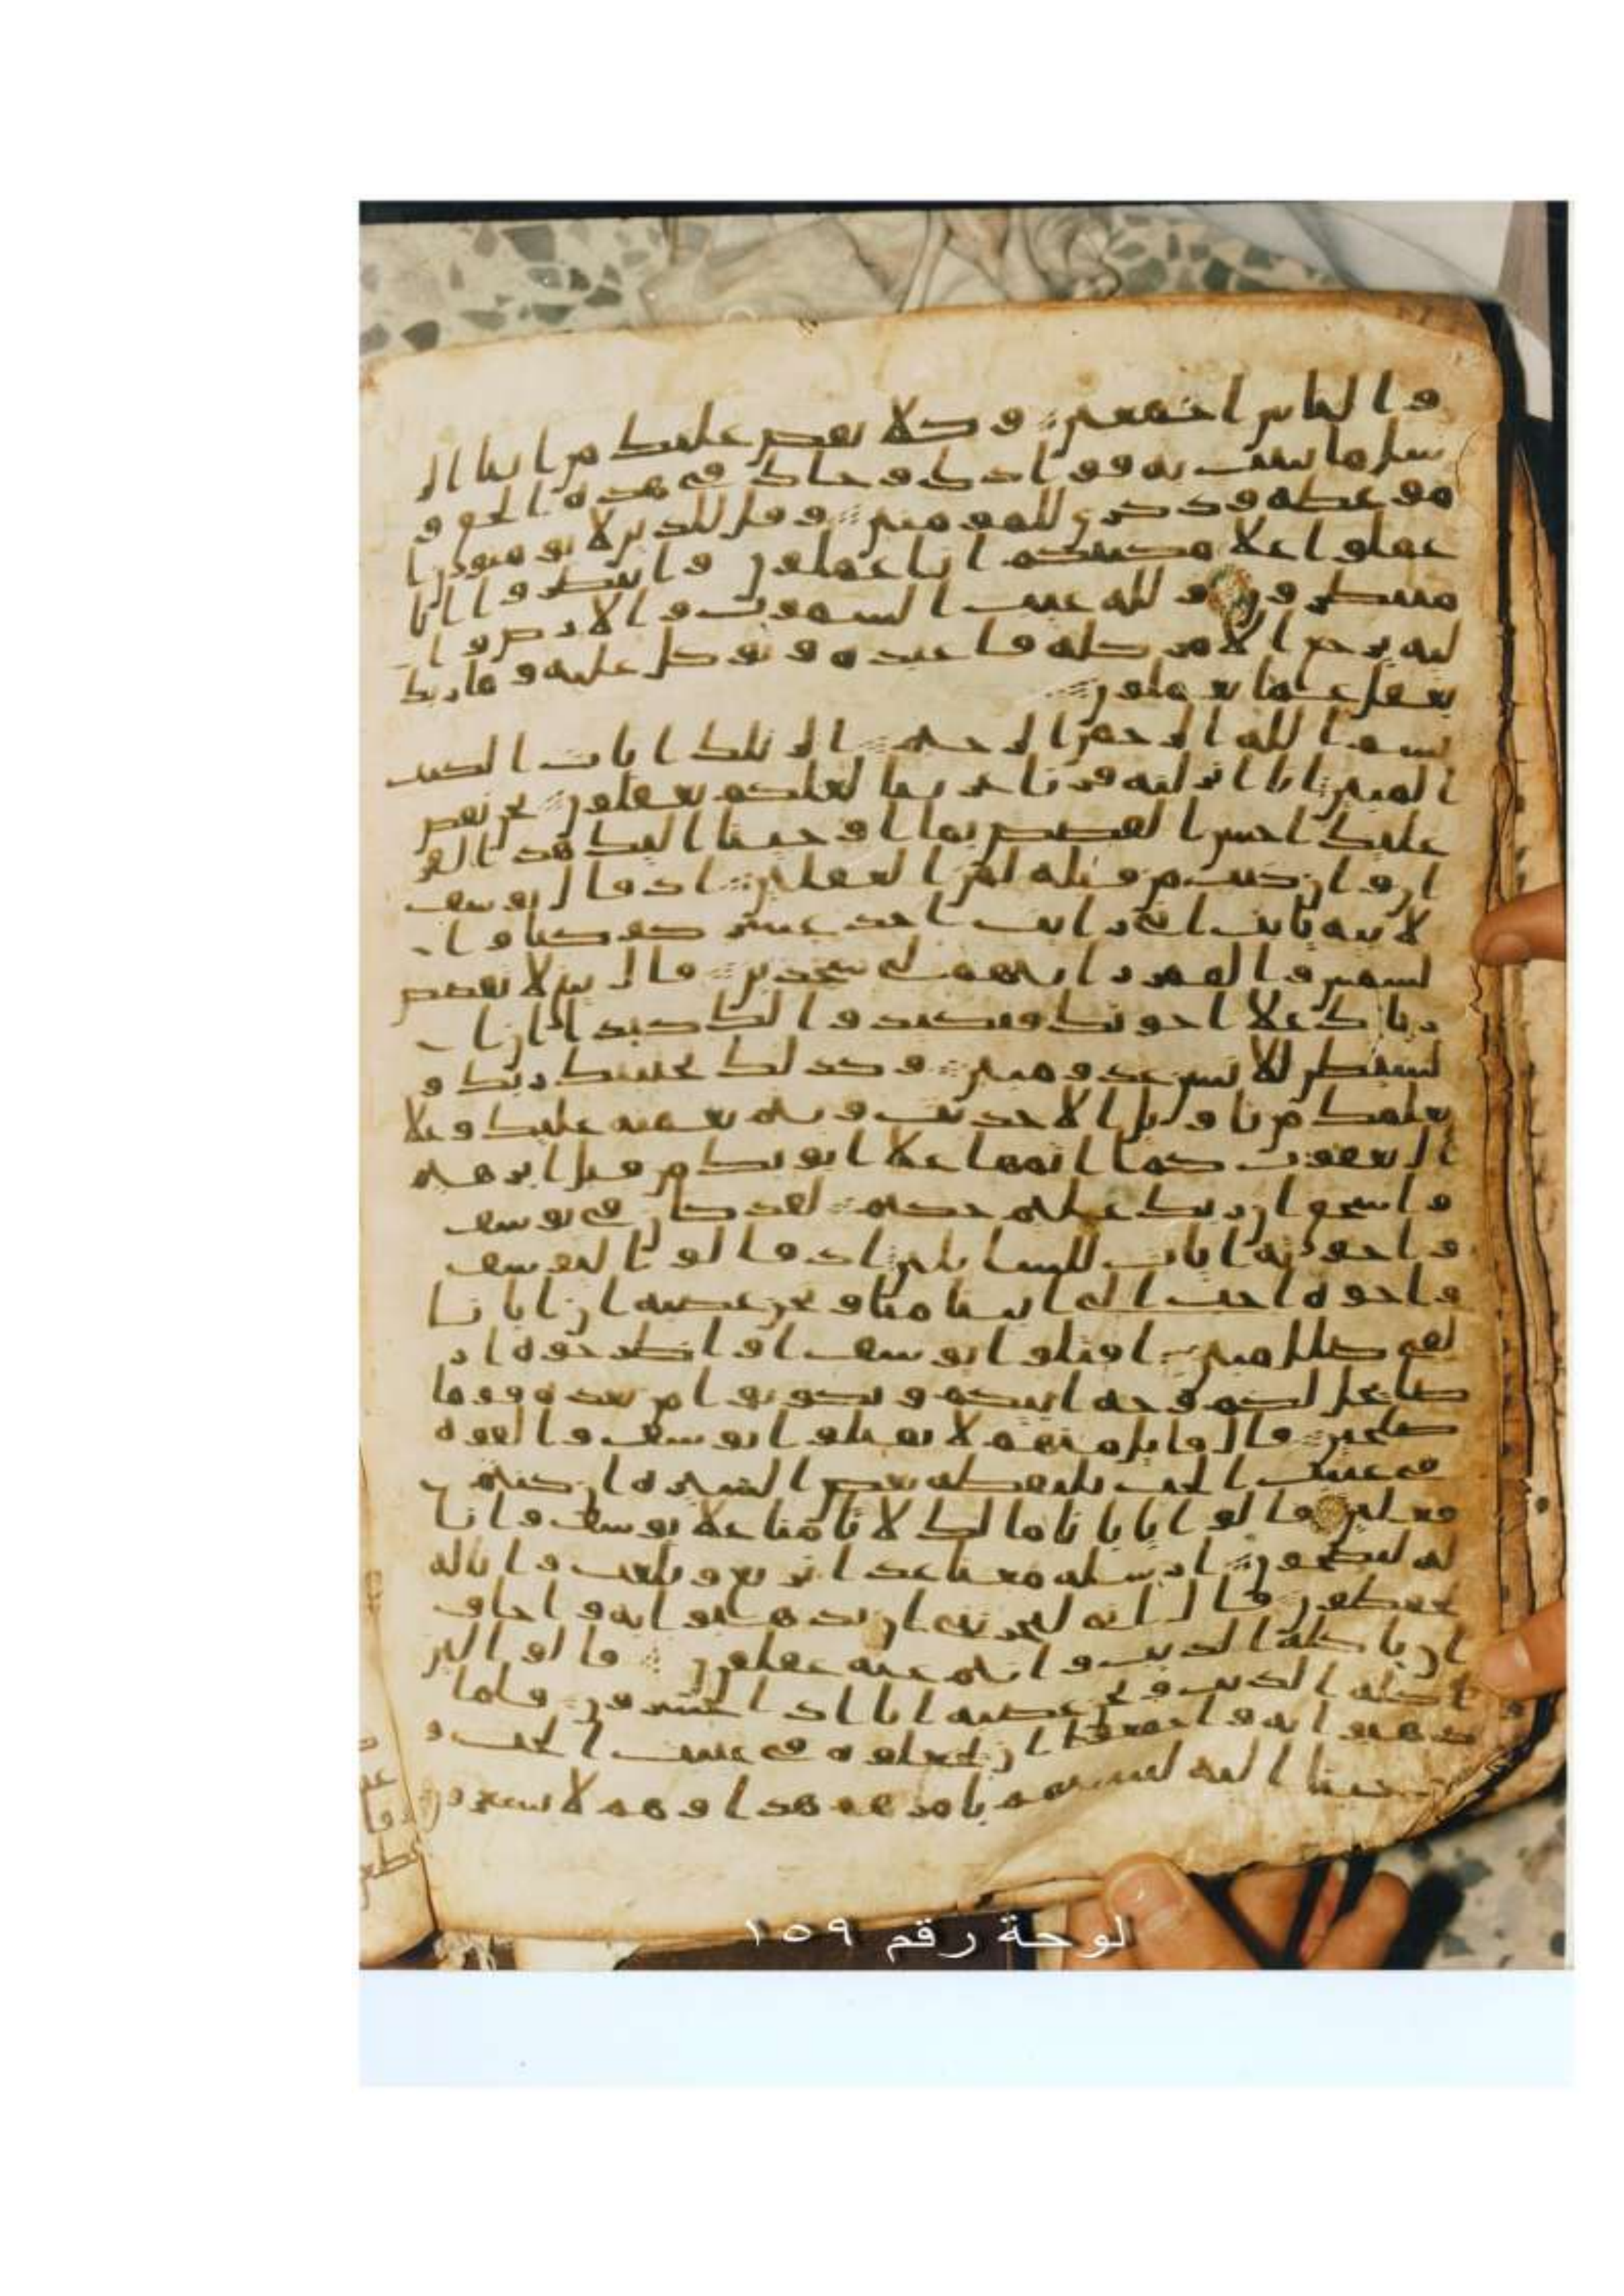 و الناس اجمعين و كلا نقص عليك من انبا الر
سل ما نثبت به فوادك و جاك في هذه الحق و
موعظه و ذكرى للمومنين و قل للذين لا يومنون ا
عملوا علا مكنتكم انا عملون و انتظروا انا
منتظرون و لله غيب السموت و الارض و ا
ليه يرجع الامر كله فاعبده و توكل عليه و ما ربك
بغفل عما تعملون
بسم الله الرحمن الرحيم الر تلك ايات الكتب
المبين انا انزلنه قرنا عربيا لعلكم تعقلون نحن نقص
عليك احسن القصص بما اوحينا اليك هذا القر
ان و ان كنت من قبله لمن الغفلين اذ قال يوسف
لابيه يابت اني رايت احد عشر كوكبا و ا
لشمس و القمر رايتهم لي سجدين قال يبني لا تقصص
رياك علا اخوتك فيكيدوا لك كيدا ان ا
لشيطن للانسن عدو مبين و كذلك يجتبيك ربك و
يعلمك من تاويل الاحديث و يتم نعمته عليك و علا
ال يعقوب كما اتمها علا ابويك من قبل ابرهيم
و اسحق ان ربك عليم حكيم لقد كان في يوسف
و اخوته ايات للسايلين اذ قالوا ليوسف
و اخوه احب الي ابينا منا و نحن عصبه ان ابانا
لفي ضلل مبين اقتلوا يوسف او اطرحوه ار
ضا يخل لكم وجه ابيكم و تكونوا من بعده قوما
صلحين قال قايل منهم لا تقتلوا يوسف و القوه
في غيبت الجب يلتقطه بعض السيره ان كنتم
فعلين قالوا يابانا ما لك لا تامنا علا يوسف و انا
له لنصحون ارسله معنا غدا نرتع و نلعب و انا له
لحفظون قال اني ليحزنني ان تذهبوا به و اخاف
ان ياكله الذيب و انتم عنه غفلون قالوا لين
اكله الذيب و نحن عصبه انا اذا لخسرون فلما
ذهبوا به و اجمعوا ان يجعلوه في غيبت الجب و
حينا اليه لتنبينهم بامرهم هذا و هم لا يشعرون
لوحة رقم ١٥٩